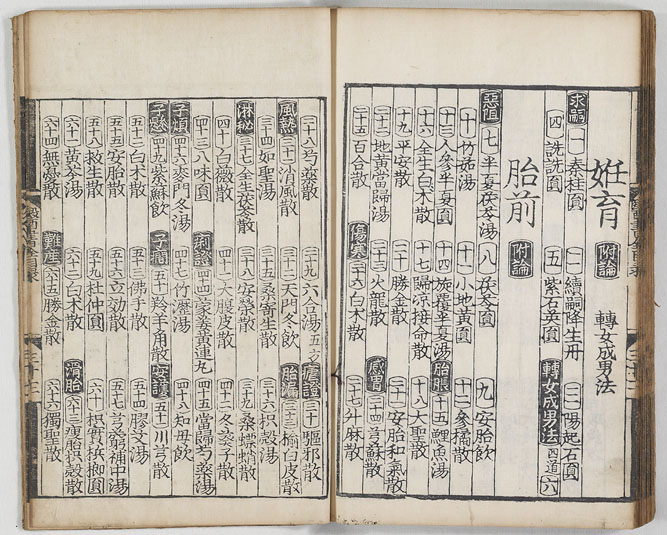 姙育 附論 轉女成男法
求嗣 一 秦桂圓 二 續嗣降生丹 三 陽起石圓
四 詵詵圓 五 紫石英圓 轉女成男法 四道 六
胎前 附論
惡阻 七 半夏茯苓湯 八 茯苓圓 九 安胎飲
十 竹茹湯 十一 小地黃圓 十二 參橘散
十三 人參半夏圓 十四 旋覆半夏湯 胎脹 十五 鯉魚湯
十六 全生白术散 十七 隔凉接命散 十八 大聖散
十九 平安散 二十 勝金散 二十一 安胎和氣散
二十二 地黃當歸湯 二十三 火龍散 感冒 二十四 芎蘇散
二十五 百合散 傷寒 二十六 白术散 二十七 升麻散
二十八 散 二十九 六合湯 五方 瘧證 三十 驅邪散
風熱 三十一 消風散 三十二 天門冬飲 胎漏 三十三 榆白皮散
三十四 如聖湯 三十五 桑寄生散 三十六 枳殼湯
淋秘 三十七 全生茯苓散 三十八 安榮散 三十九 桑螵蛸散
四十 白薇散 四十一 大腹皮散 四十二 冬葵子散
四十三 八味圓 痢證 四十四 蒙姜黃連丸 四十五 當歸芍藥湯
子煩 四十六 麥門冬湯 四十七 竹瀝湯 四十八 知母飲
子懸 四十九 紫蘇飲 子癎 五十 羚羊角散 安胎 五十一 川芎散
五十二 白术散 五十三 佛手散 五十四 膠艾湯
五十五 安胎散 五十六 立効散 五十七 芎藭補中湯
五十八 救生散 五十九 杜仲圓 六十 枳實檳榔圓
六十一 黃芩湯 六十二 白术散 滑胎 六十三 瘦胎枳殼散
六十四 無憂散 難產 六十五 勝金散 六十六 獨聖散